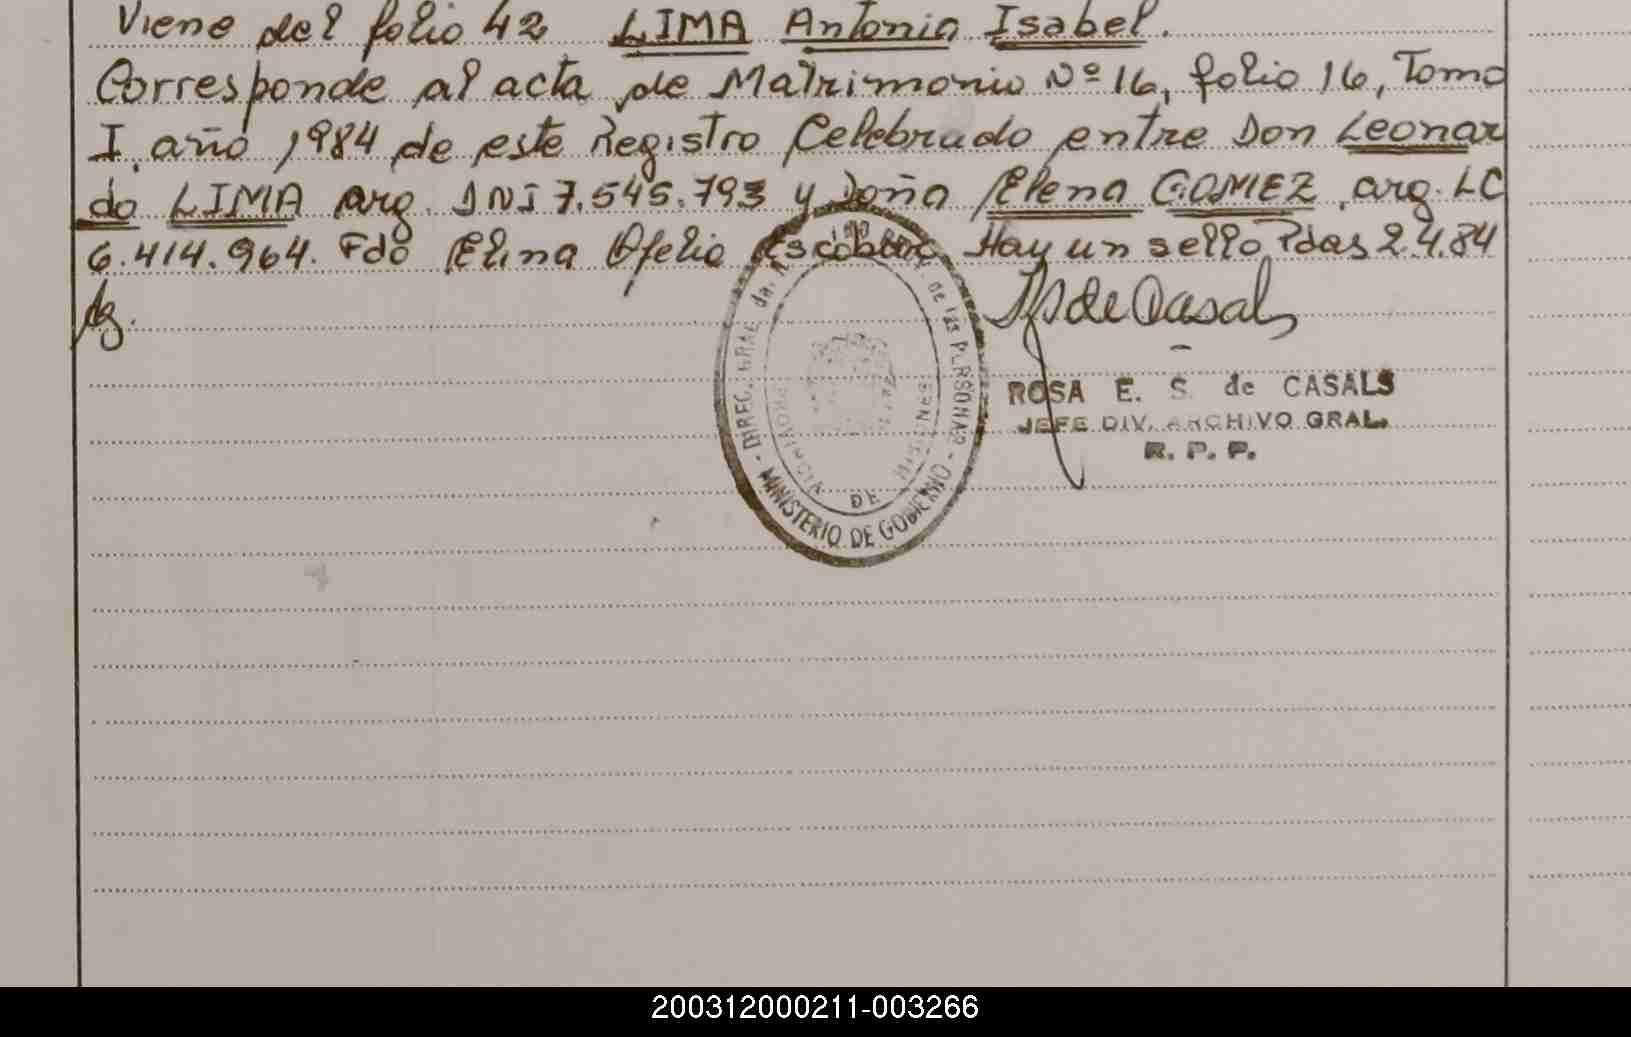 Viene del folio 42 LIMA Antonia Isabel.
Corresponde al acta de Matrimonio Nº 16, folio 16, Tomo
I, año 1984 de este Registro Celebrado entre Don Leonar
do LIMA arg. DNI 7.545.793 y Doña Elena GOMEZ, arg. LC
6.414.964. Fdo Elina Ofelia Escobar Hay un sello Pdas 2.4.84
DIREC. GRAL de las PERSONAS - MINISTERIO DE GOBIERNO -
PROVINCIA DE MISIONES
de Casals
ROSA E. S. de CASALS
JEFE DIV. ARCHIVO GRAL.
R. P. P.
200312000211-003266